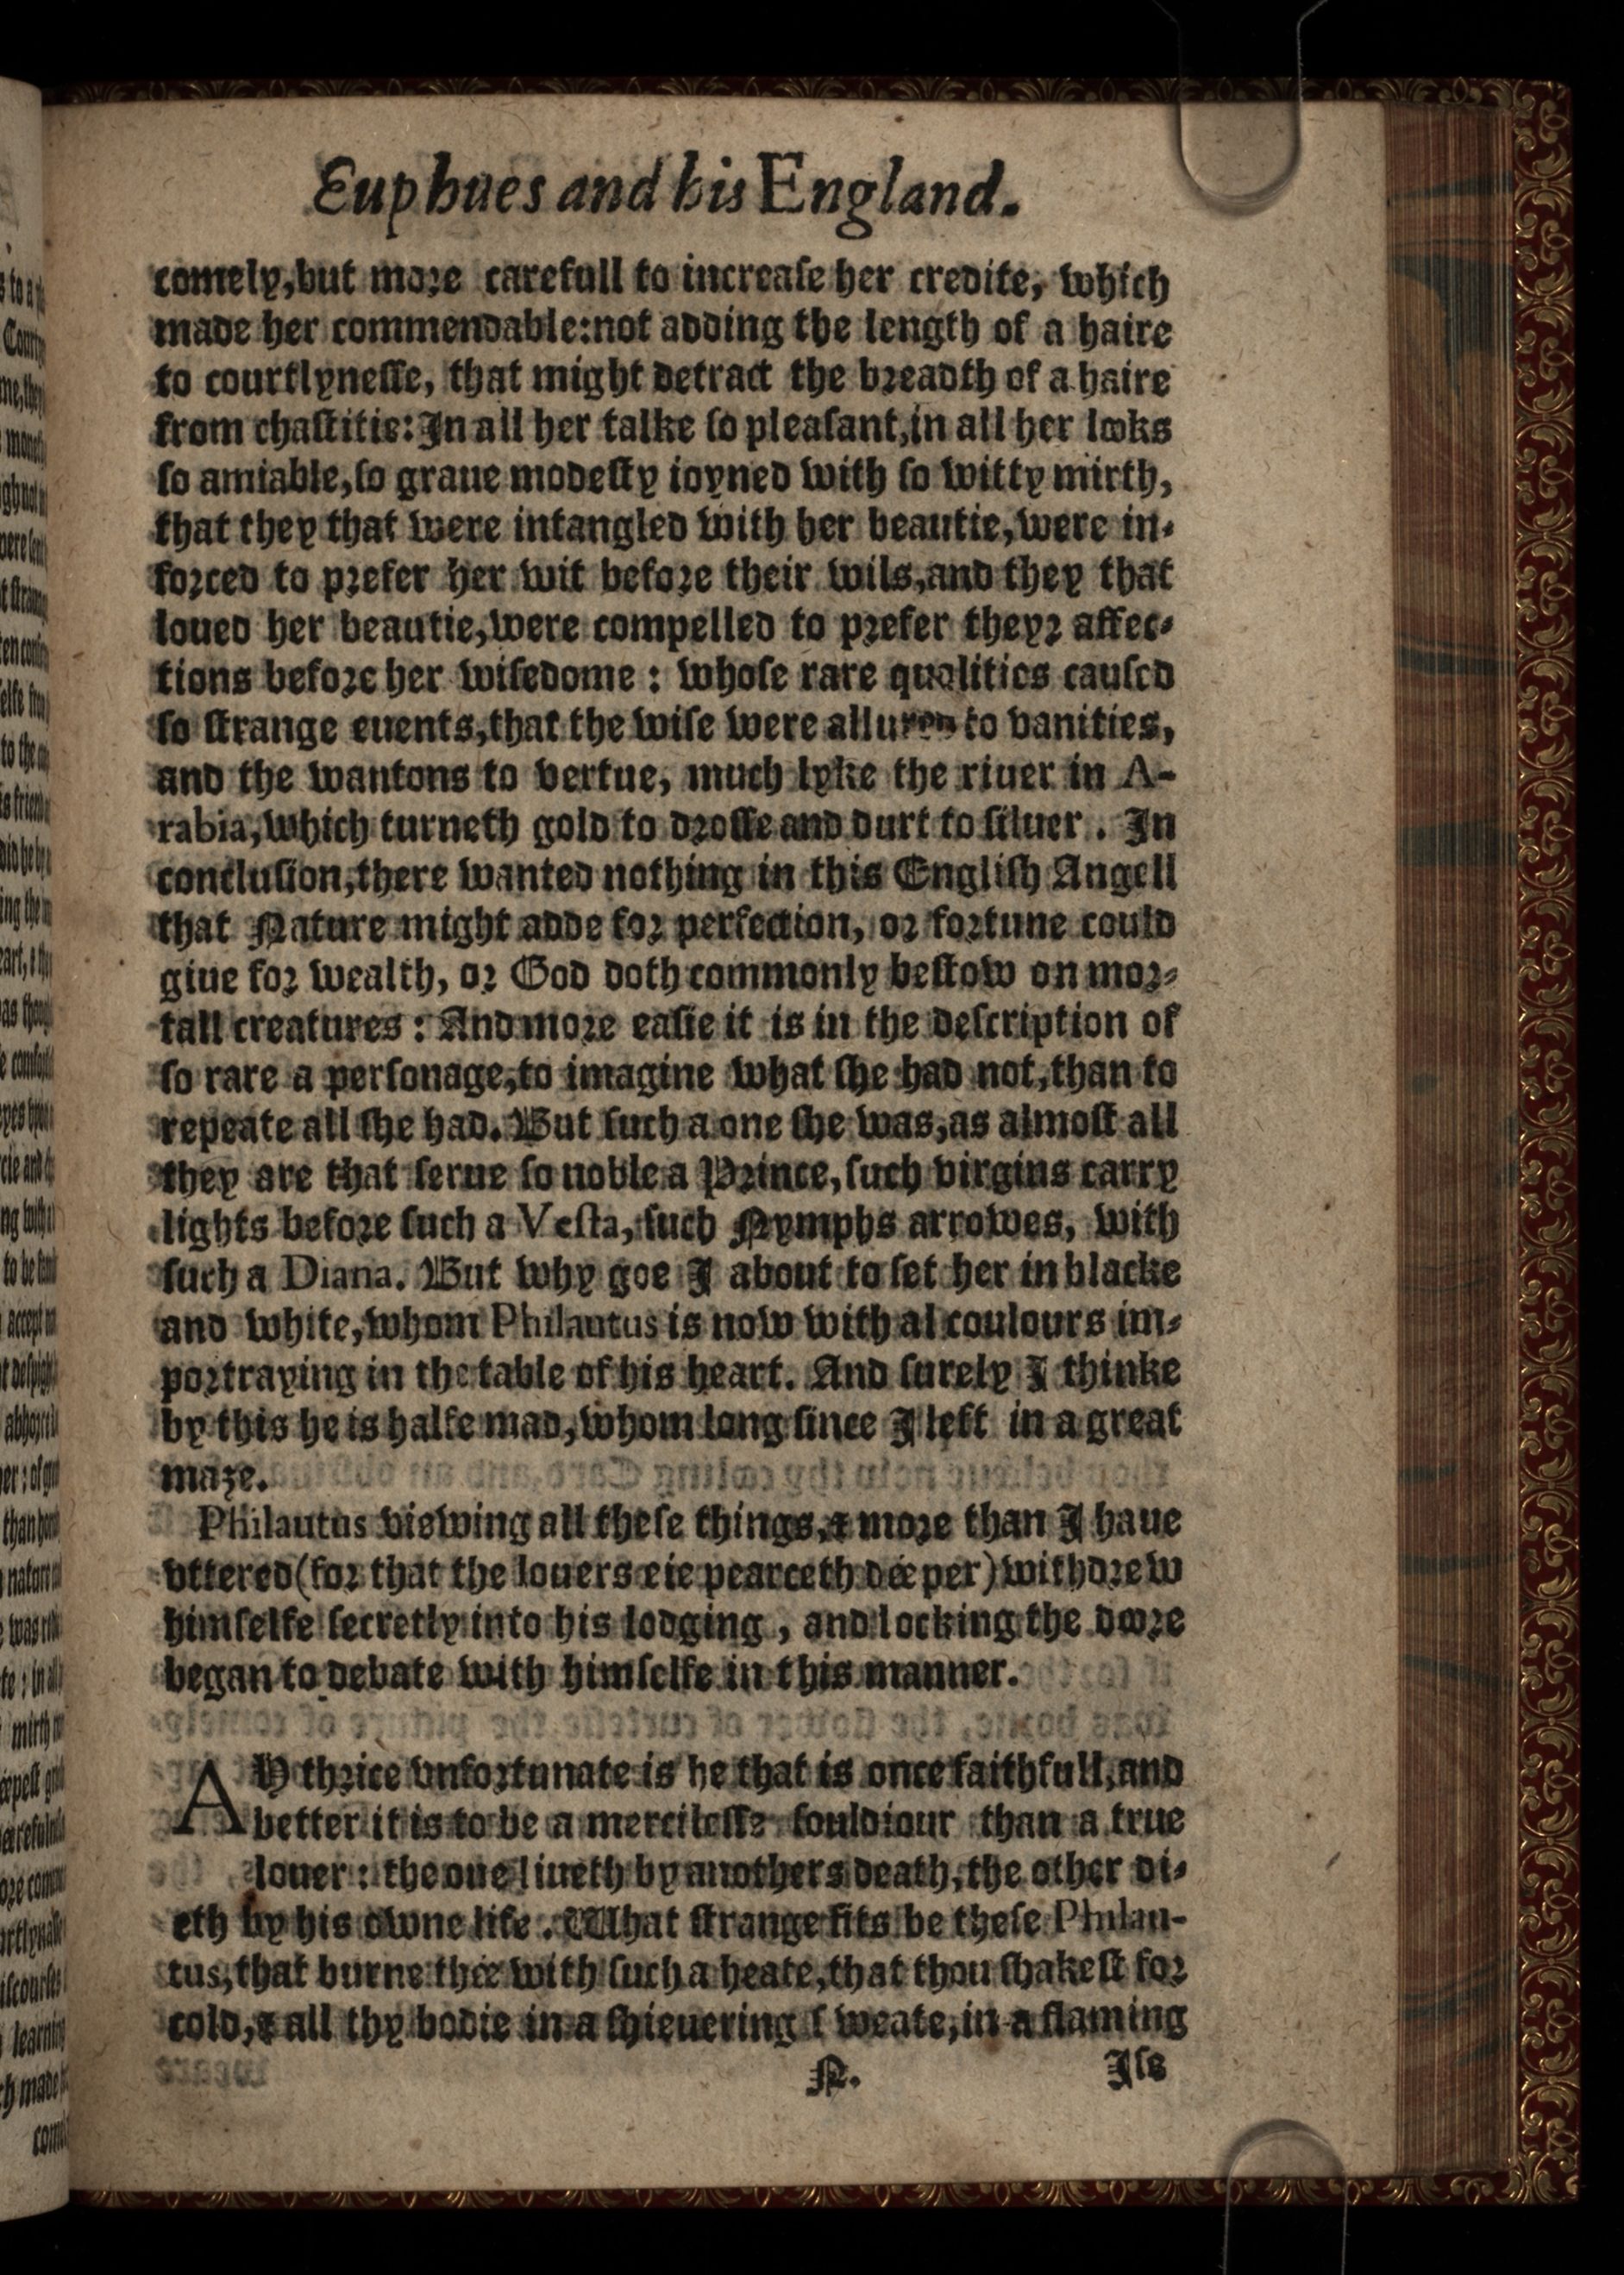 Euphues and his England.
comely,but more carefull to increaſe her credite, which
made her commendable:not adding the length of a haire
to courtlyneſſe, that might detract the breadth of a haire
from chaſtitie: In all her talke ſo pleaſant,in all her lookes
ſo amiable,ſo graue modeſty ioyned with ſo witty mirth,
that they that were intangled with her beautie,were in-
forced to prefer her wit before their wils,and they that
loued her beautie,were compelled to prefer theyr affec-
tions before her wiſedome : whoſe rare qualities cauſed
ſo ſtrange euents,that the wiſe were allured to vanities,
and the wantons to vertue, much lyke the riuer in A-
rabia,which turneth gold to droſſe and durt to ſiluer . In
concluſion,there wanted nothing in this Engliſh Angell
that Nature might adde for perfection, or fortune could
giue for wealth, or God doth commonly beſtow on mor-
tall creatures : And more eaſie it is in the deſcription of
ſo rare a perſonage,to imagine what ſhe had not,than to
repeate all ſhe had. But ſuch a one ſhe was,as almoſt all
they are that ſerue ſo noble a Prince,ſuch virgins carry
lights before ſuch a Veſta, ſuch Nymphs arrowes, with
ſuch a Diana. But why goe I about to ſet her in blacke
and white,whom Philautus is now with al coulours im-
portraying in the table of his heart. And ſurely I thinke
by this he is halfe mad,whom long ſince I left in a great
maze.
Philautus viewing all theſe things,& more than I haue
vttered(for that the louers eie pearceth deeper)withdrew
himſelfe ſecretly into his lodging , and locking the doore
began to debate with himſelfe in this manner.
AY thrice vnfortunate is he that is once faithfull,and
better it is to be a mercileſſe ſouldiour than a true
louer : the one liueth by anothers death,the other di-
eth by his owne life . What ſtrange fits be theſe Philau-
tus,that burne thee with ſuch a heate,that thou ſhakeſt for
cold,& all thy bodie in a ſhieuering ſweate,in a flaming
N. Iſe